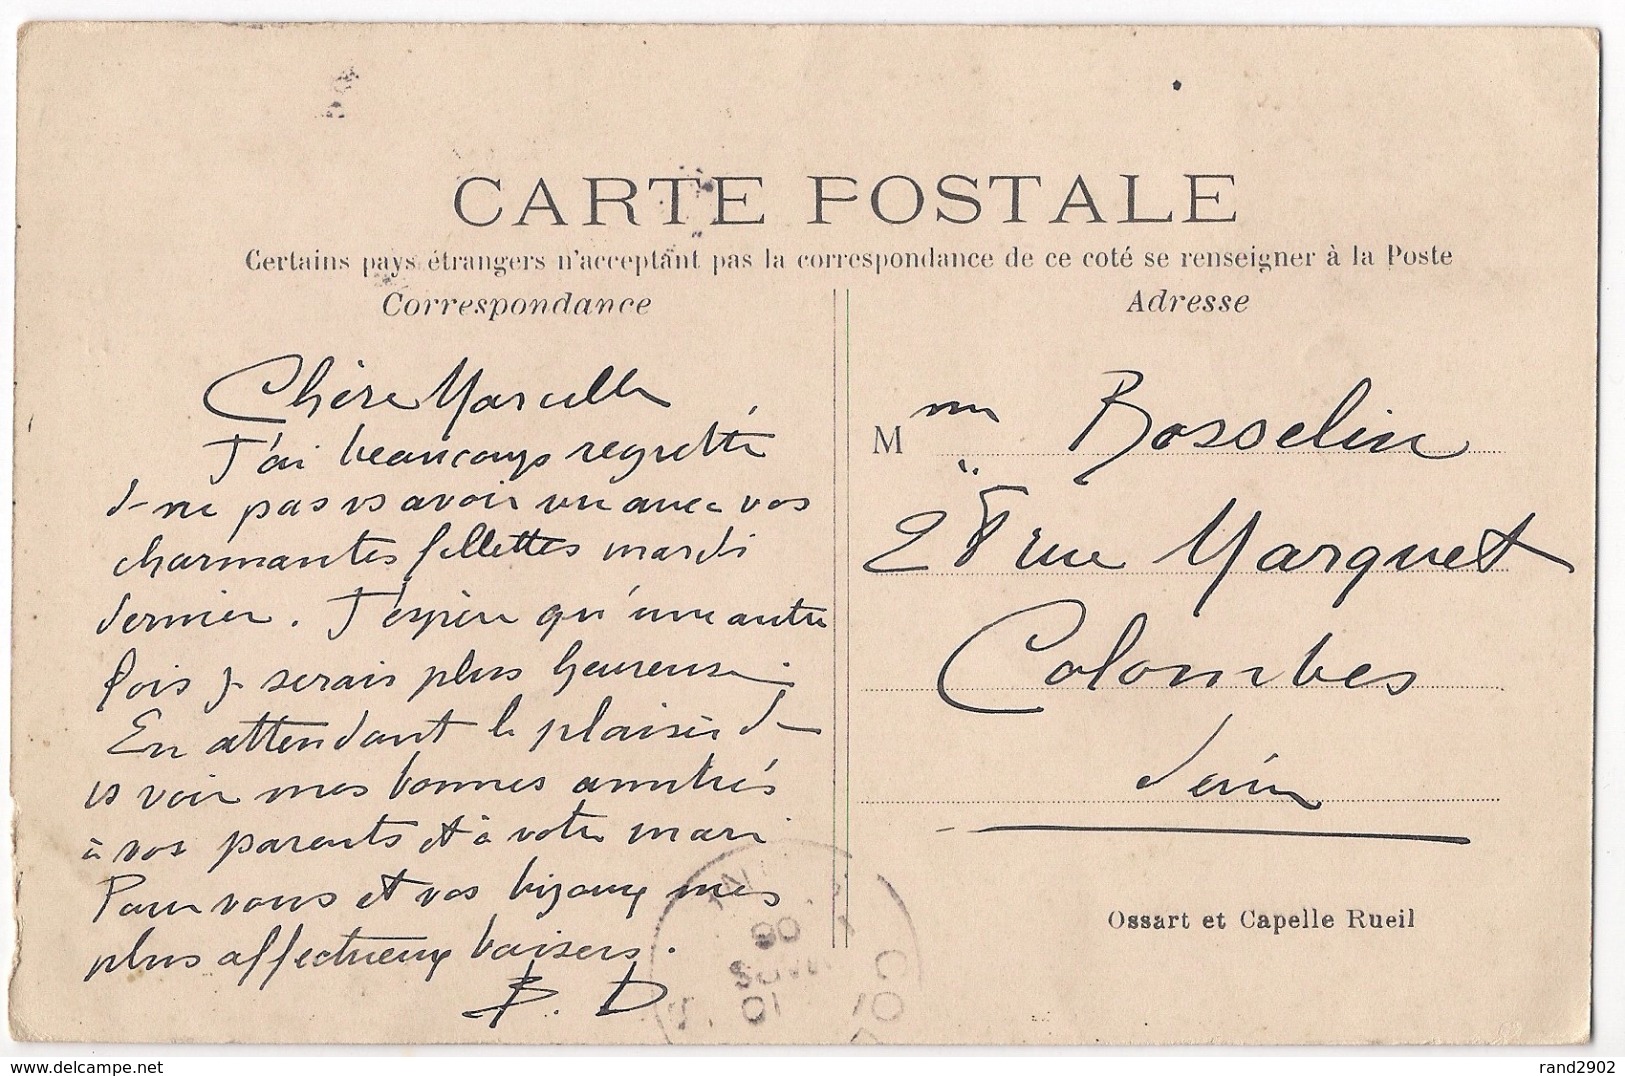 CARTE POSTALE
Certains pays étrangers n'acceptant pas la correspondance de ce coté se renseigner à la Poste
Correspondance
Chère Marcelle
J'ai beaucoup regretté
de ne pas vs avoir vue avec vos
charmantes fillettes mardi
dernier. J'espère qu'une autre
fois je serais plus heureuse.
En attendant le plaisir de
vs voir mes bonnes amitiés
à vos parents et à votre mari
Pour vous et vos bijoux mes
plus affectueux baisers.
B. D
Adresse
Mme Bosselin
28 rue Marquet
Colombes
Seine
Ossart et Capelle Rueil
10
06
delcampe.net
rand2902